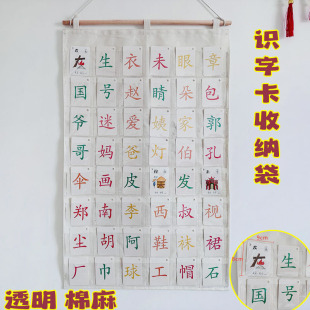 左 生 衣 未 眼 章
国 号 赵 睛 朵 包
爷 迷 爱 姨 家 郭
哥 妈 爸 灯 伯 孔
伞 画 皮 发
郑 南 李 西 叔 视
尘 胡 阿 鞋 妹 裙
厂 巾 球 工 帽 石
识字卡收纳袋
透明 棉麻
左 生
国 号